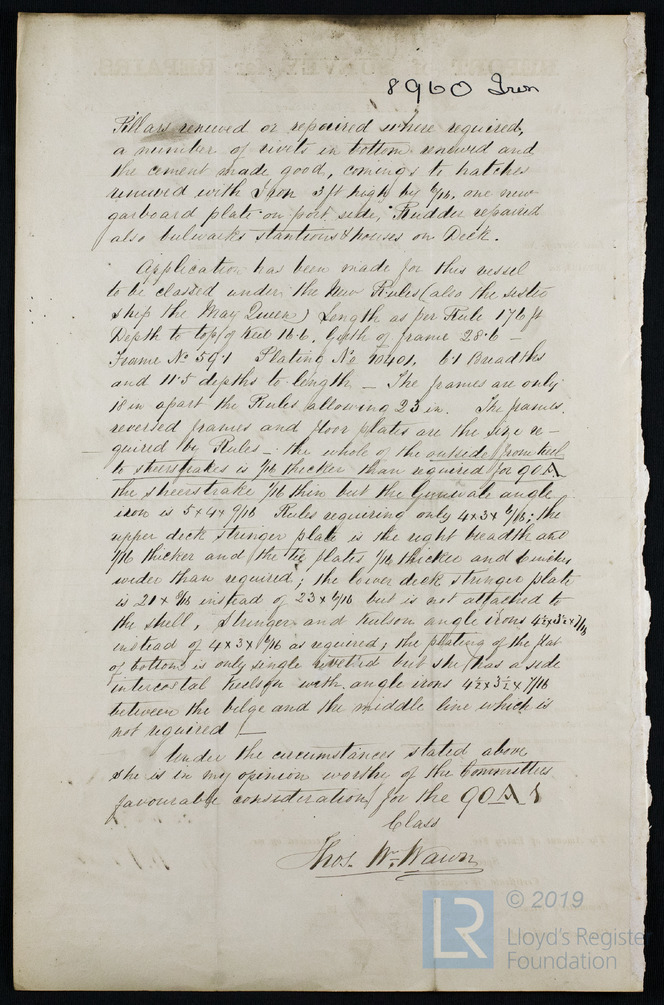 8960 Iron
Pillars renewed or repaired where required,
a number of rivets in bottom renewed and
the cement made good, comings to hatches
renewed with Iron 3 ft high by 6/16, one new
garboard plate on port side, Rudder repaired
also bulwarks stantions & houses on Deck.
Application has been made for this vessel
to be classed under the New Rules (also the sister
ship the May Queen) Length as per Rule 176 ft
Depth to top of keel 16.6, Girth of frame 28.6 -
Frame No 59.1 Plating No 10401, 6.1 Breadths
and 11.5 depths to length - The frames are only
18 in apart the Rules allowing 23 in. The frames,
reversed frames and floor plates are the size re-
quired by Rules - the whole of the outside from keel
to sheerstrakes is 1/16 thicker than required for 90A
the sheerstrake 1/16 thin but the Gunwale angle
iron is 5 x 4 x 9/16 Rules requiring only 4 x 3 x 6/16; the
upper deck stringer plate is the right breadth and
1/16 thicker and the tie plates 1/16 thicker and inches
wider than required; the lower deck stringer plate
is 21 x /16 instead of 23 x 6/16 but is not attached to
the shell, Stringer and keelson angle irons 4½ x 3½ x 7/16
instead of 4 x 3 x 6/16 as required; the plating of the flat
of bottom is only single riveted but she has a side
intercostal keelson with angle irons 4½ x 3½ x 7/16
between the bilge and the middle line which is
not required -
Under the circumstances stated above
she is in my opinion worthy of the Committees
favourable consideration for the 90A1
Class
Thos. Wm. Wawn
LR
© 2019
Lloyd's Register
Foundation